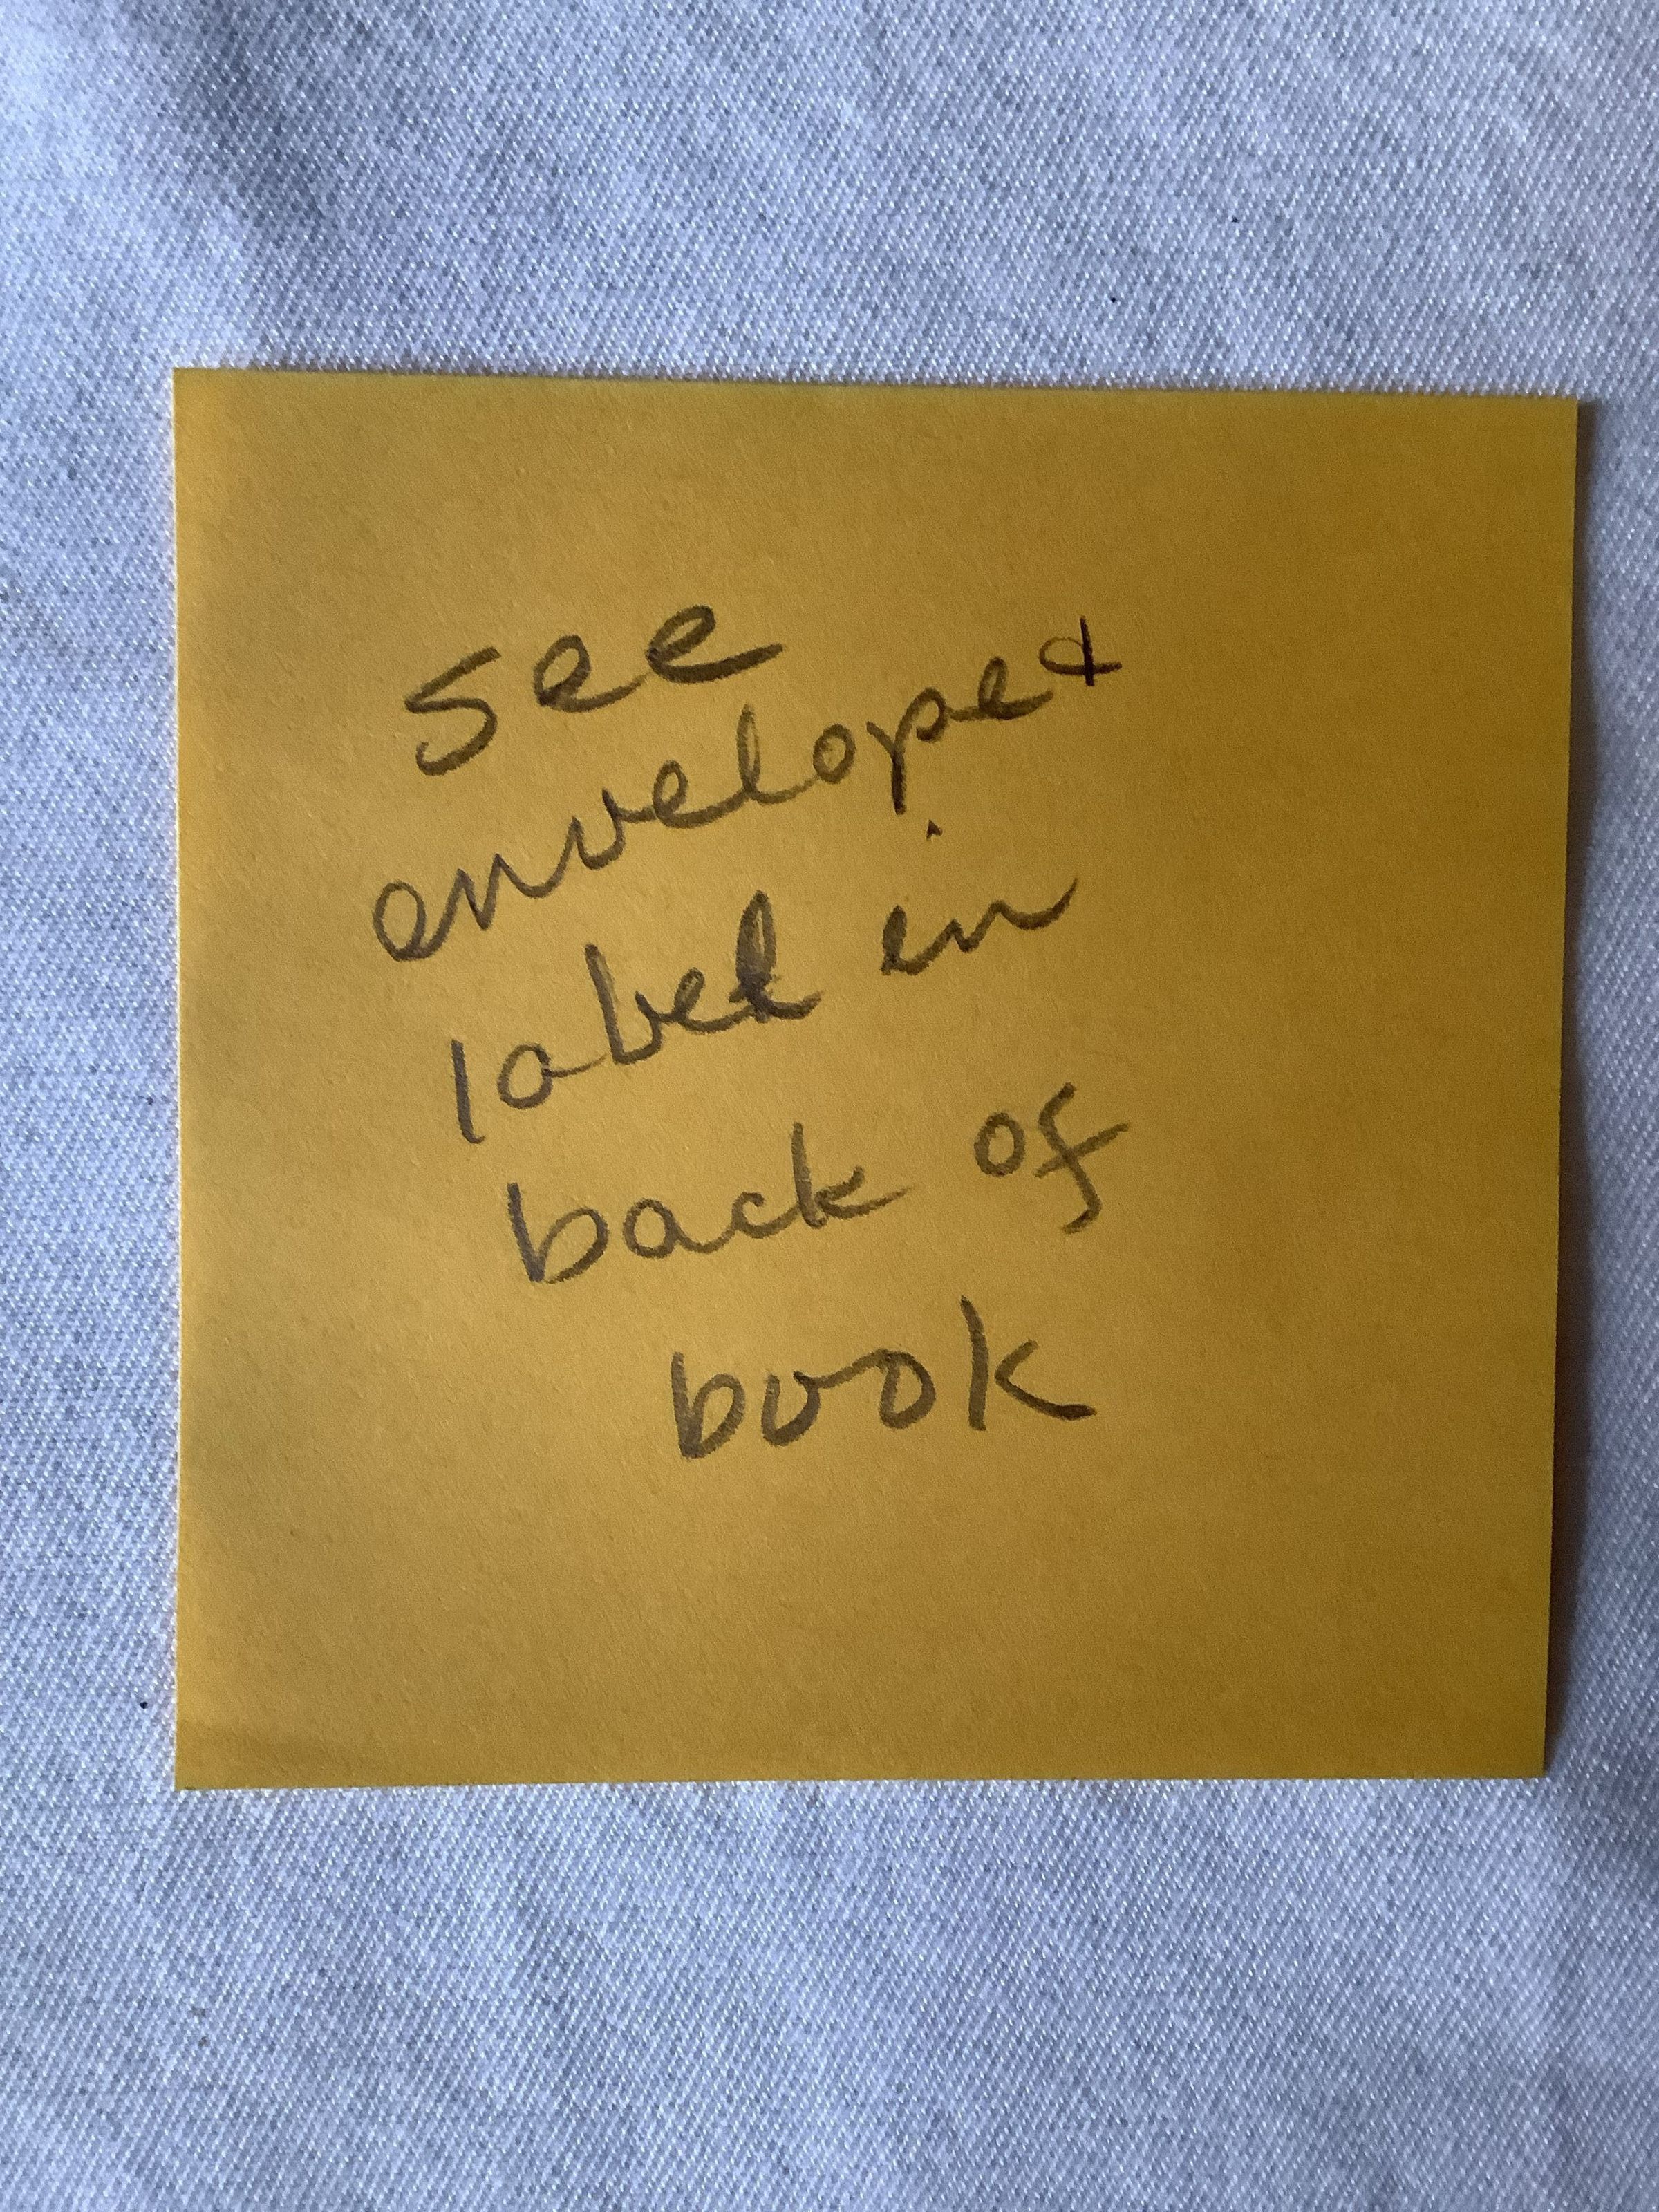 see
envelope &
label in
back of
book